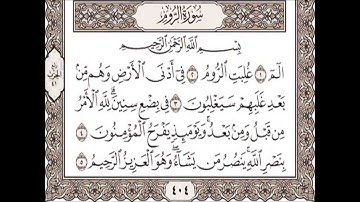 سُورَةُ الرُّومِ
بِسْمِ اللَّهِ الرَّحْمَٰنِ الرَّحِيمِ
الٓمٓ ١ غُلِبَتِ الرُّومُ ٢ فِىٓ أَدْنَى الْأَرْضِ وَهُم مِّنۢ
بَعْدِ غَلَبِهِمْ سَيَغْلِبُونَ ٣ فِى بِضْعِ سِنِينَ ۗ لِلَّهِ الْأَمْرُ
مِن قَبْلُ وَمِنۢ بَعْدُ ۚ وَيَوْمَئِذٍ يَفْرَحُ الْمُؤْمِنُونَ ٤
بِنَصْرِ اللَّهِ ۚ يَنصُرُ مَن يَشَآءُ ۖ وَهُوَ الْعَزِيزُ الرَّحِيمُ ٥
٤٠٤